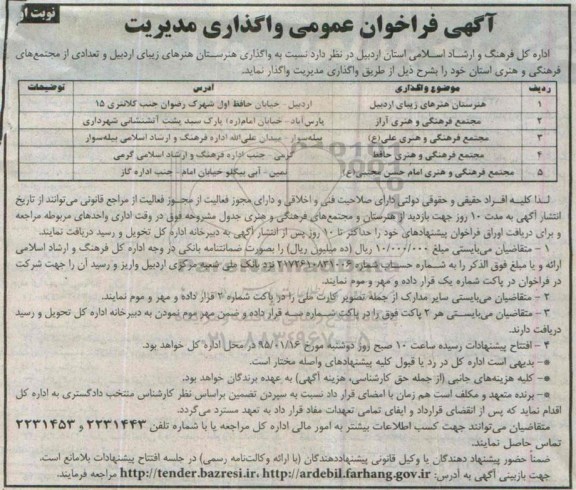 نوبت اول
آگهی فراخوان عمومی واگذاری مدیریت
اداره کل فرهنگ و ارشاد اسلامی استان اردبیل در نظر دارد نسبت به واگذاری هنرستان هنرهای زیبای اردبیل و تعدادی از مجتمع‌های
فرهنگی و هنری استان خود را بشرح ذیل از طریق واگذاری مدیریت واگذار نماید.
ردیف موضوع واگذاری آدرس توضیحات
۱ هنرستان هنرهای زیبای اردبیل اردبیل - خیابان حافظ اول شهرک رضوان جنب کلانتری ۱۵
۲ مجتمع فرهنگی و هنری آراز پارس‌آباد - خیابان امام(ره) پارک سپید پشت آتشنشانی شهرداری
۳ مجتمع فرهنگی و هنری علی(ع) بیله‌سوار - میدان علی‌الله اداره فرهنگ و ارشاد اسلامی بیله‌سوار
۴ مجتمع فرهنگی و هنری حافظ گرمی - جنب اداره فرهنگ و ارشاد اسلامی گرمی
۵ مجتمع فرهنگی و هنری امام حسن مجتبی(ع) نمین - آبی بیگلو خیابان امام - جنب اداره گاز
لذا کلیه افراد حقیقی و حقوقی دولتی دارای صلاحیت فنی و اخلاقی و دارای مجوز فعالیت از مجوز فعالیت از مراجع قانونی می‌توانند از تاریخ
انتشار آگهی به مدت ۱۰ روز جهت بازدید از هنرستان و مجتمع‌های فرهنگی و هنری جدول مشروحه فوق در وقت اداری واحدهای مربوطه مراجعه
و برای دریافت اوراق فراخوان پیشنهادهای خود را حداکثر تا ۱۰ روز پس از انتشار آگهی به دبیرخانه اداره کل تحویل و رسید دریافت نمایند.
۱ – متقاضیان می‌بایستی مبلغ ۱۰/۰۰۰/۰۰۰ ریال (ده میلیون ریال) را بصورت ضمانتنامه بانکی در وجه اداره کل فرهنگ و ارشاد اسلامی
ارائه و یا مبلغ فوق الذکر را به شماره حساب شماره ۲۱۷۷۶۱۰۸۳۱۰۰۶ نزد بانک ملی شعبه مرکزی اردبیل واریز و رسید آن را جهت شرکت
در فراخوان در پاکت شماره یک قرار داده و مهر و موم نمایند.
۲ – متقاضیان می‌بایستی سایر مدارک از جمله تصویر کارت ملی را در پاکت شماره ۲ قرار داده و مهر و موم نمایند.
۳ – متقاضیان می‌بایستی هر ۲ پاکت فوق را در پاکت شماره سه قرار داده و ضمن مهر موم نمودن به دبیرخانه اداره کل تحویل و رسید
دریافت دارند.
۴ – افتتاح پیشنهادات رسیده ساعت ۱۰ صبح روز دوشنبه مورخ ۹۵/۰۱/۱۶ در محل اداره کل خواهد بود.
– بدیهی است اداره کل در رد یا قبول کلیه پیشنهادهای واصله مختار است.
– کلیه هزینه‌های جانبی (از جمله حق کارشناسی، هزینه آگهی) به عهده برندگان خواهد بود.
– برنده متعهد و مکلف است هم زمان با امضای قرار داد نسبت به سپردن تضمین براساس نظر کارشناس منتخب دادگستری به اداره کل
اقدام نماید که پس از انقضای قرارداد و ایفای تمامی تعهدات مفاد قرار داد به تعهد مسترد می‌گردد.
متقاضیان می‌توانند جهت کسب اطلاعات بیشتر به امور مالی اداره کل مراجعه یا با شماره تلفن ۲۲۳۱۴۴۳ و ۲۲۳۱۴۵۳
تماس حاصل نمایند.
ضمناً حضور پیشنهاد دهندگان یا وکیل قانونی پیشنهاددهندگان (با ارائه وکالت‌نامه رسمی) در جلسه افتتاح پیشنهادات بلامانع است.
جهت بازبینی آگهی به آدرس: http://tender.bazresi.ir، http://ardebil.farhang.gov.ir مراجعه فرمایند.